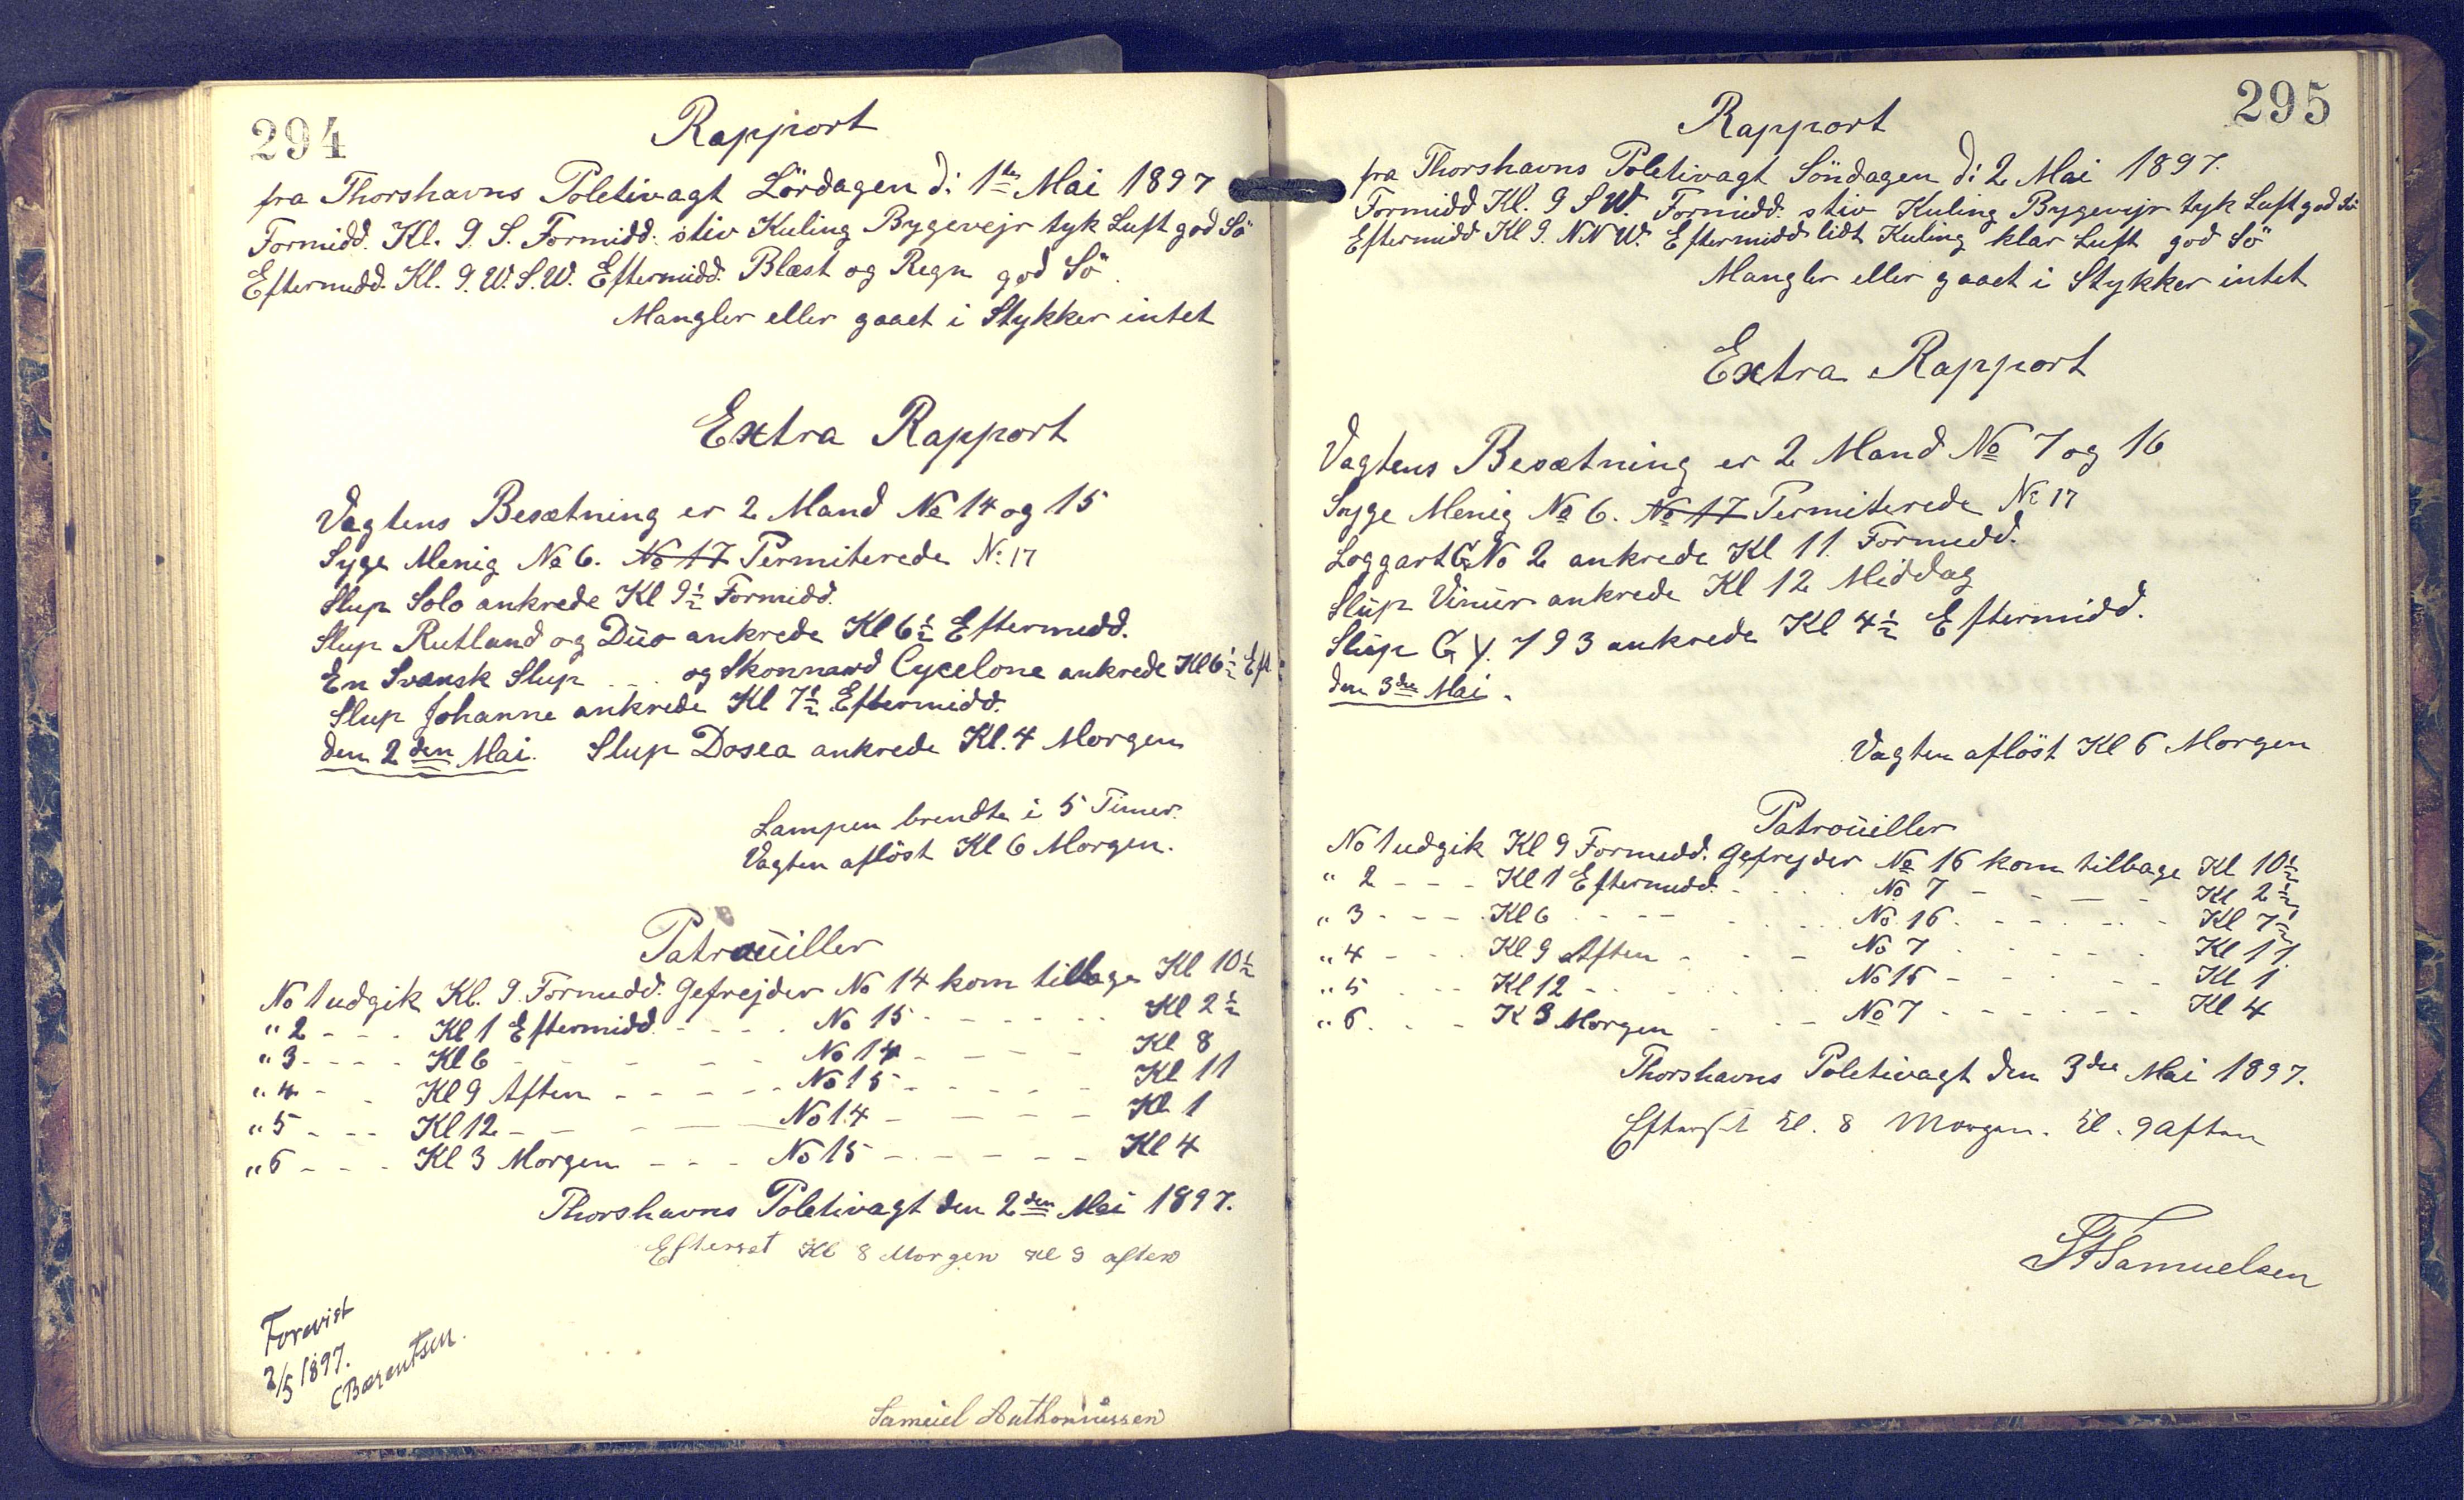 294
Rapport
fra Thorshavns Poletivagt Lördagen d: 1ste Mai 1897
Formidd. Kl. 9. S. Formidd. stiv Kuling Bygevejr tyk Luft god Sö
Eftermidd. Kl. 9. W.S.W. Eftermidd. Blæst og Regn god Sö.
Mangler eller gaaet i Stykker intet
Extra Rapport
Vagtens Besætning er 2 Mand No 14 og 15
Syge Menig No 6. No 17 Permiterede No 17
Slup Solo ankrede Kl 9½ Formidd.
Slup Rutland og Düo ankrede Kl 6½ Eftermidd.
En Svænsk Slup . . . og Skonnard Cycelone ankrede Kl 6½ Eft:
Slup Johanne ankrede Kl 7½ Eftermidd.
den 2den Mai. Slup Dosea ankrede Kl. 4 Morgen
Lampen brendte i 5 Timer.
Vagten aflöst Kl 6 Morgen.
Patroüiller
No 1 udgik Kl. 9 Formidd. Gefrejder No 14 kom tilbage Kl 10½
" 2 - - - Kl 1 Eftermidd. - - - - No 15 - - - - - - Kl 2½
" 3 - - - - Kl 6 - - - - - No 14 - - - - Kl 8
" 4 - - Kl 9 Aften - - - - - No 15 - - - - - Kl 11
" 5 - - - Kl 12 - - - - No 14 - - - - - Kl 1
" 6 - - - Kl 3 Morgen - - - No 15 - - - - - - Kl 4
Thorshavns Poletivagt den 2den Mai 1897.
Efterset Kl 8 Morgen Kl 9 aften
Forevist
3/5 1897.
CBærentsen.
Sameiel Anthoniussen
295
Rapport
fra Thorshavns Poletivagt Söndagen d: 2 Mai 1897.
Formidd Kl. 9 SW. Formidd. stiv Kuling Bygevejr tyk Luft god Sö
Eftermidd Kl 9. NNW. Eftermidd lidt Kuling klar Luft god Sö
Mangler eller gaaet i Stykker intet
Extra Rapport
Vagtens Besætning er 2 Mand No 7 og 16
Syge Menig No 6. No 17 Permiterede No 17
Loggart G No 2 ankrede Kl 11 Formidd.
Slüp Vinür ankrede Kl 12 Middag
Slüp G Y. 793 ankrede Kl 4½ Eftermidd.
den 3die Mai.
Vagten aflöst Kl 6 Morgen
Patroüiller
No 1 udgik Kl 9 Formidd. Gefrejder No 16 kom tilbage Kl 10½
" 2 - - - Kl 1 Eftermidd. - - - No 7 - - - - Kl 2½
" 3 - - - - Kl 6 - - - - - No 16 - - - - - - Kl 7½
" 4 - - Kl 9 Aften - - - No 7 - - - - - Kl 11
" 5 - - Kl 12 - - - - No 16 - - - - - Kl 1
" 6 - - - K 3 Morgen - - - No 7 - - - - - - Kl 4
Thorshavns Poletivagt den 3die Mai 1897.
Efterset Kl. 8 Morgen. Kl. 9 aften
Samuelsen